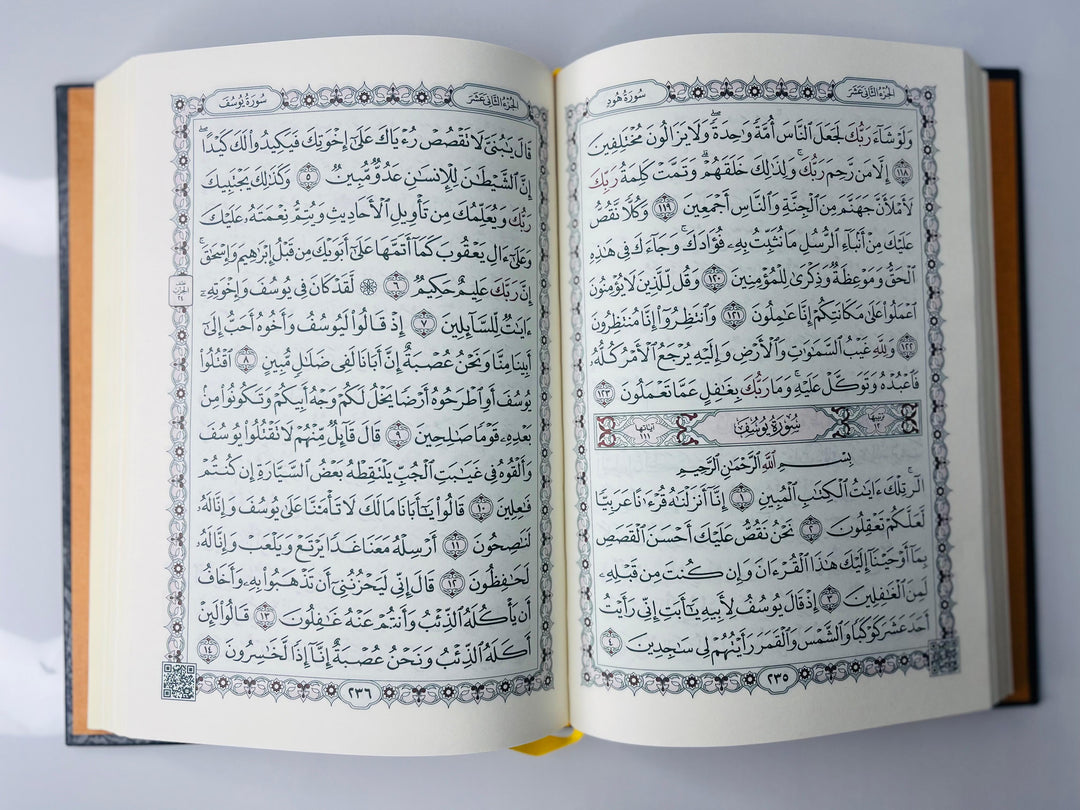 الجزء الثاني عشر
سورة هود
وَلَوْ شَآءَ رَبُّكَ لَجَعَلَ ٱلنَّاسَ أُمَّةً وَٰحِدَةً ۖ وَلَا يَزَالُونَ مُخْتَلِفِينَ
﴿١١٨﴾ إِلَّا مَن رَّحِمَ رَبُّكَ ۚ وَلِذَٰلِكَ خَلَقَهُمْ ۗ وَتَمَّتْ كَلِمَةُ رَبِّكَ
لَأَمْلَأَنَّ جَهَنَّمَ مِنَ ٱلْجِنَّةِ وَٱلنَّاسِ أَجْمَعِينَ ﴿١١٩﴾ وَكُلًّا نَّقُصُّ
عَلَيْكَ مِنْ أَنۢبَآءِ ٱلرُّسُلِ مَا نُثَبِّتُ بِهِۦ فُؤَادَكَ ۚ وَجَآءَكَ فِى هَٰذِهِ
ٱلْحَقُّ وَمَوْعِظَةٌ وَذِكْرَىٰ لِلْمُؤْمِنِينَ ﴿١٢٠﴾ وَقُل لِّلَّذِينَ لَا يُؤْمِنُونَ
ٱعْمَلُوا۟ عَلَىٰ مَكَانَتِكُمْ إِنَّا عَٰمِلُونَ ﴿١٢١﴾ وَٱنتَظِرُوٓا۟ إِنَّا مُنتَظِرُونَ
﴿١٢٢﴾ وَلِلَّهِ غَيْبُ ٱلسَّمَٰوَٰتِ وَٱلْأَرْضِ وَإِلَيْهِ يُرْجَعُ ٱلْأَمْرُ كُلُّهُۥ
فَٱعْبُدْهُ وَتَوَكَّلْ عَلَيْهِ ۚ وَمَا رَبُّكَ بِغَٰفِلٍ عَمَّا تَعْمَلُونَ ﴿١٢٣﴾
ترتيبها ١٢ سُورَةُ يُوسُفَ آياتها ١١١
بِسْمِ ٱللَّهِ ٱلرَّحْمَٰنِ ٱلرَّحِيمِ
الٓر ۚ تِلْكَ ءَايَٰتُ ٱلْكِتَٰبِ ٱلْمُبِينِ ﴿١﴾ إِنَّآ أَنزَلْنَٰهُ قُرْءَٰنًا عَرَبِيًّا
لَّعَلَّكُمْ تَعْقِلُونَ ﴿٢﴾ نَحْنُ نَقُصُّ عَلَيْكَ أَحْسَنَ ٱلْقَصَصِ
بِمَآ أَوْحَيْنَآ إِلَيْكَ هَٰذَا ٱلْقُرْءَانَ وَإِن كُنتَ مِن قَبْلِهِۦ
لَمِنَ ٱلْغَٰفِلِينَ ﴿٣﴾ إِذْ قَالَ يُوسُفُ لِأَبِيهِ يَٰٓأَبَتِ إِنِّى رَأَيْتُ
أَحَدَ عَشَرَ كَوْكَبًا وَٱلشَّمْسَ وَٱلْقَمَرَ رَأَيْتُهُمْ لِى سَٰجِدِينَ ﴿٤﴾
٢٣٥
الجزء الثاني عشر
سورة يوسف
قَالَ يَٰبُنَىَّ لَا تَقْصُصْ رُءْيَاكَ عَلَىٰٓ إِخْوَتِكَ فَيَكِيدُوا۟ لَكَ كَيْدًا ۖ
إِنَّ ٱلشَّيْطَٰنَ لِلْإِنسَٰنِ عَدُوٌّ مُّبِينٌ ﴿٥﴾ وَكَذَٰلِكَ يَجْتَبِيكَ
رَبُّكَ وَيُعَلِّمُكَ مِن تَأْوِيلِ ٱلْأَحَادِيثِ وَيُتِمُّ نِعْمَتَهُۥ عَلَيْكَ
وَعَلَىٰٓ ءَالِ يَعْقُوبَ كَمَآ أَتَمَّهَا عَلَىٰٓ أَبَوَيْكَ مِن قَبْلُ إِبْرَٰهِيمَ وَإِسْحَٰقَ ۚ
إِنَّ رَبَّكَ عَلِيمٌ حَكِيمٌ ﴿٦﴾ ۞ لَّقَدْ كَانَ فِى يُوسُفَ وَإِخْوَتِهِۦٓ
ءَايَٰتٌ لِّلسَّآئِلِينَ ﴿٧﴾ إِذْ قَالُوا۟ لَيُوسُفُ وَأَخُوهُ أَحَبُّ إِلَىٰٓ
أَبِينَا مِنَّا وَنَحْنُ عُصْبَةٌ إِنَّ أَبَانَا لَفِى ضَلَٰلٍ مُّبِينٍ ﴿٨﴾ ٱقْتُلُوا۟
يُوسُفَ أَوِ ٱطْرَحُوهُ أَرْضًا يَخْلُ لَكُمْ وَجْهُ أَبِيكُمْ وَتَكُونُوا۟ مِنۢ
بَعْدِهِۦ قَوْمًا صَٰلِحِينَ ﴿٩﴾ قَالَ قَآئِلٌ مِّنْهُمْ لَا تَقْتُلُوا۟ يُوسُفَ
وَأَلْقُوهُ فِى غَيَٰبَتِ ٱلْجُبِّ يَلْتَقِطْهُ بَعْضُ ٱلسَّيَّارَةِ إِن كُنتُمْ
فَٰعِلِينَ ﴿١٠﴾ قَالُوا۟ يَٰٓأَبَانَا مَا لَكَ لَا تَأْمَ۫نَّا عَلَىٰ يُوسُفَ وَإِنَّا لَهُۥ
لَنَٰصِحُونَ ﴿١١﴾ أَرْسِلْهُ مَعَنَا غَدًا يَرْتَعْ وَيَلْعَبْ وَإِنَّا لَهُۥ
لَحَٰفِظُونَ ﴿١٢﴾ قَالَ إِنِّى لَيَحْزُنُنِىٓ أَن تَذْهَبُوا۟ بِهِۦ وَأَخَافُ
أَن يَأْكُلَهُ ٱلذِّئْبُ وَأَنتُمْ عَنْهُ غَٰفِلُونَ ﴿١٣﴾ قَالُوا۟ لَئِنْ
أَكَلَهُ ٱلذِّئْبُ وَنَحْنُ عُصْبَةٌ إِنَّآ إِذًا لَّخَٰسِرُونَ ﴿١٤﴾
٢٣٦